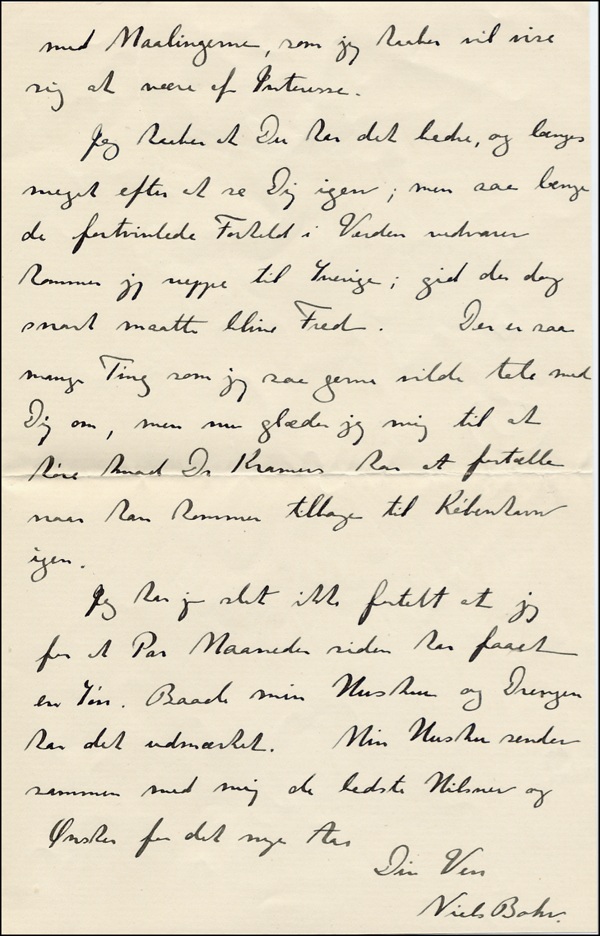 med Maalingerne, som jeg haaber vil vise
sig at være af Interesse.
Jeg haaber at Du har det bedre, og længes
meget efter at se Dig igen; men saa længe
de fortvivlede Forhold i Verden vedvarer
kommer jeg neppe til Sverige; gid der dog
snart maatte blive Fred. Der er saa
mange Ting som jeg saa gerne vilde tale med
Dig om, men nu glæder jeg mig til at
høre hvad Dr Kramers har at fortælle
naar han kommer tilbage til København
igen.
Jeg har jo slet ikke fortalt at jeg
for et Par Maaneder siden har faaet
en Søn. Baade min Hustru og Drengen
har det udmærket. Min Hustru sender
sammen med mig de bedste Hilsner og
Ønsker for det nye Aar
Din Ven
Niels Bohr.